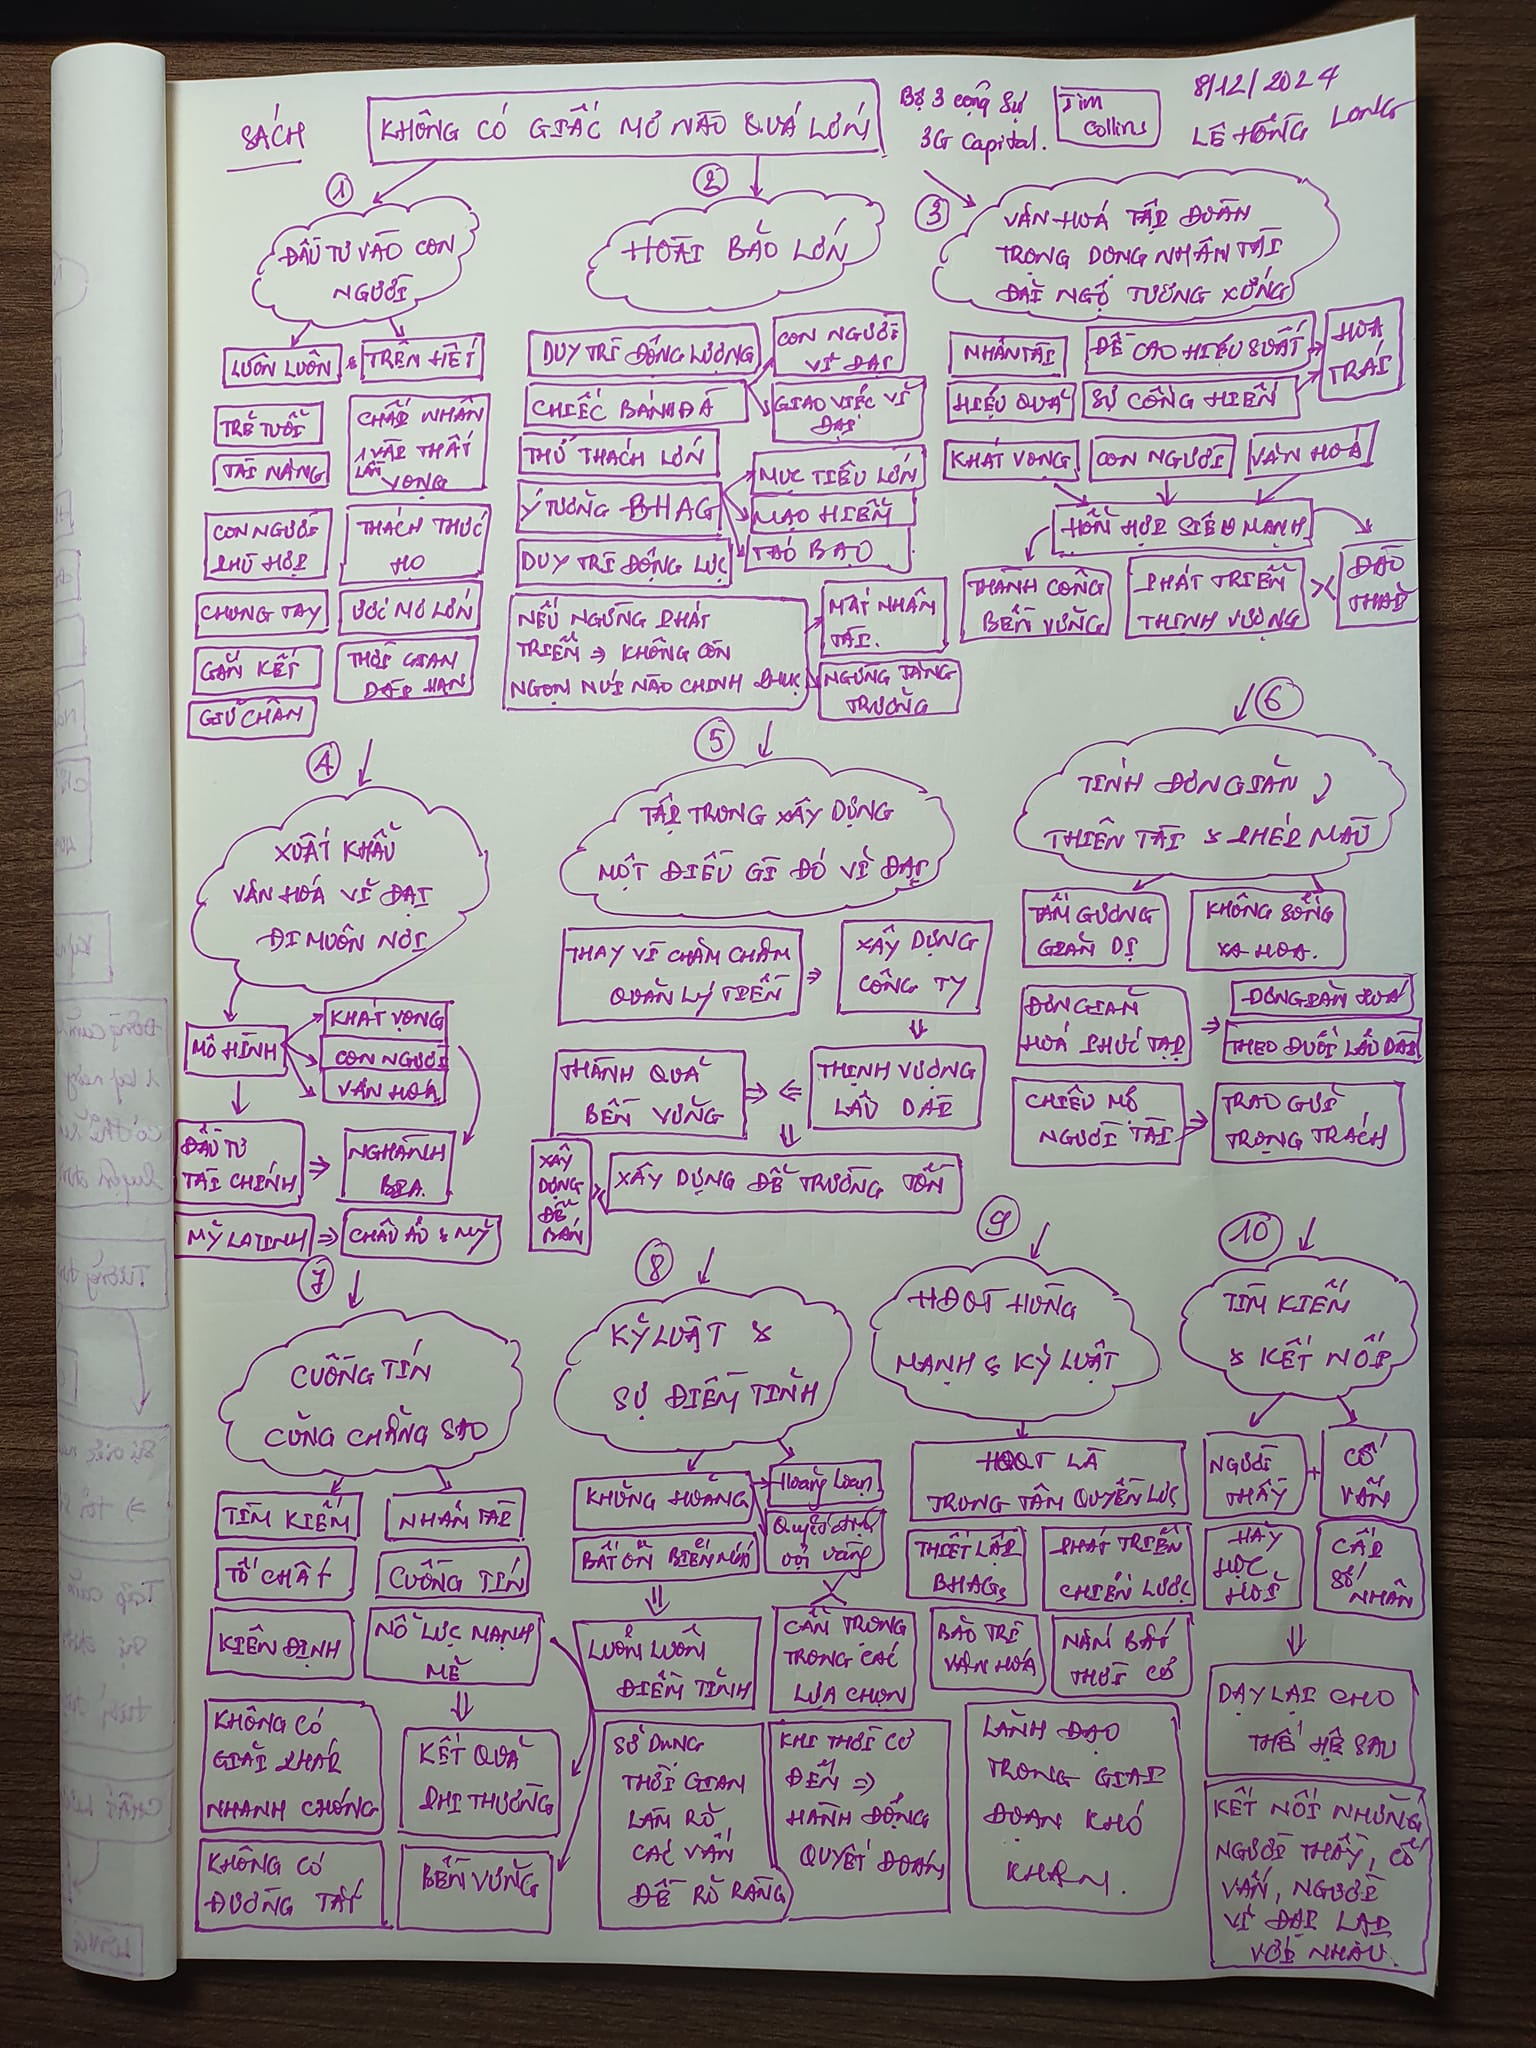 SÁCH
KHÔNG CÓ GIẤC MƠ NÀO QUÁ LỚN
Bộ 3 cộng sự
3G Capital.
Jim
Collins
8/12/2024
LÊ HỒNG LONG
1
ĐẦU TƯ VÀO CON
NGƯỜI
LUÔN LUÔN & TRÊN HẾT
TRẺ TUỔI
TÀI NĂNG
CON NGƯỜI
PHÙ HỢP
CHUNG TAY
GẮN KẾT
GIỮ CHÂN
CHẤP NHẬN
1 VÀI THẤT
LẦN VỌNG
THÁCH THỨC
HỌ
ƯỚC MƠ LỚN
THỜI GIAN
DÀI HẠN
2
HOÀI BÃO LỚN
DUY TRÌ ĐỘNG LƯỢNG
CHIẾC BÁNH ĐÀ
CON NGƯỜI
VĨ ĐẠI
GIAO VIỆC VĨ
ĐẠI
THỬ THÁCH LỚN
Ý TƯỞNG BHAG
MỤC TIÊU LỚN
MẠO HIỂM
TÁO BẠO
DUY TRÌ ĐỘNG LỰC
NẾU NGỪNG PHÁT
TRIỂN => KHÔNG CÒN
NGỌN NÚI NÀO CHINH PHỤC
MẤT NHÂN
TÀI.
NGỪNG TĂNG
TRƯỞNG
3
VĂN HOÁ TẬP ĐOÀN
TRỌNG DỤNG NHÂN TÀI
ĐÃI NGỘ TƯƠNG XỨNG
NHÂN TÀI
HIỆU QUẢ
ĐỀ CAO HIỆU SUẤT
SỰ CỐNG HIẾN
HOA
TRÁI
KHÁT VỌNG
CON NGƯỜI
VĂN HOÁ
HỖN HỢP SIÊU MẠNH
THÀNH CÔNG
BỀN VỮNG
PHÁT TRIỂN
THỊNH VƯỢNG
><
ĐÀO
THẢI
4
XUẤT KHẨU
VĂN HOÁ VĨ ĐẠI
ĐI MUÔN NƠI
MÔ HÌNH
KHÁT VỌNG
CON NGƯỜI
VĂN HOÁ
ĐẦU TƯ
TÀI CHÍNH
=>
NGHÀNH
BIA.
MỸ LATINH => CHÂU ÂU & MỸ
5
TẬP TRUNG XÂY DỰNG
MỘT ĐIỀU GÌ ĐÓ VĨ ĐẠI
THAY VÌ CHĂM CHĂM
QUẢN LÝ TIỀN
=>
XÂY DỰNG
CÔNG TY
THÀNH QUẢ
BỀN VỮNG
=> <=
THỊNH VƯỢNG
LÂU DÀI
XÂY
DỰNG
ĐỂ
BÁN
XÂY DỰNG ĐỂ TRƯỜNG TỒN
6
TÍNH ĐƠN GIẢN,
THIÊN TÀI & PHÉP MÀU
TẤM GƯƠNG
GIẢN DỊ
KHÔNG SỐNG
XA HOA.
ĐƠN GIẢN
HOÁ PHỨC TẠP
=>
ĐƠN GIẢN HOÁ
THEO ĐUỔI LÂU DÀI
CHIÊU MỘ
NGƯỜI TÀI
=>
TRAO GỬI
TRỌNG TRÁCH
7
CUỒNG TÍN
CŨNG CHẲNG SAO
TÌM KIẾM
TỐ CHẤT
KIÊN ĐỊNH
KHÔNG CÓ
GIẢI PHÁP
NHANH CHÓNG
KHÔNG CÓ
ĐƯỜNG TẮT
NHÂN TÀI
CUỒNG TÍN
NỖ LỰC MẠNH
MẼ
KẾT QUẢ
PHI THƯỜNG
BỀN VỮNG
8
KỶ LUẬT &
SỰ ĐIỀM TĨNH
KHỦNG HOẢNG
BẤT ỔN
Hoảng loạn
Quyết định
vội vàng
LUÔN LUÔN
ĐIỀM TĨNH
CẨN TRỌNG
TRONG CÁC
LỰA CHỌN
SỬ DỤNG
THỜI GIAN
LÀM RÕ
CÁC VẤN
ĐỀ RÕ RÀNG
KHI THỜI CƠ
ĐẾN =>
HÀNH ĐỘNG
QUYẾT ĐOÁN
9
HĐQT HÙNG
MẠNH & KỶ LUẬT
HĐQT LÀ
TRUNG TÂM QUYỀN LỰC
THIẾT LẬP
BHAGs
PHÁT TRIỂN
CHIẾN LƯỢC
BẢO TRÌ
VĂN HOÁ
NẮM BẮT
THỜI CƠ
LÃNH ĐẠO
TRONG GIAI
ĐOẠN KHÓ
KHĂN.
10
TÌM KIẾM
& KẾT NỐI
NGƯỜI
THẦY
+
CỐ
VẤN
HÃY
HỌC
HỎI
CẤP
SỐ
NHÂN
DẠY LẠI CHO
THẾ HỆ SAU
KẾT NỐI NHỮNG
NGƯỜI THẦY, CỐ
VẤN, NGƯỜI
VĨ ĐẠI LẠI
VỚI NHAU.